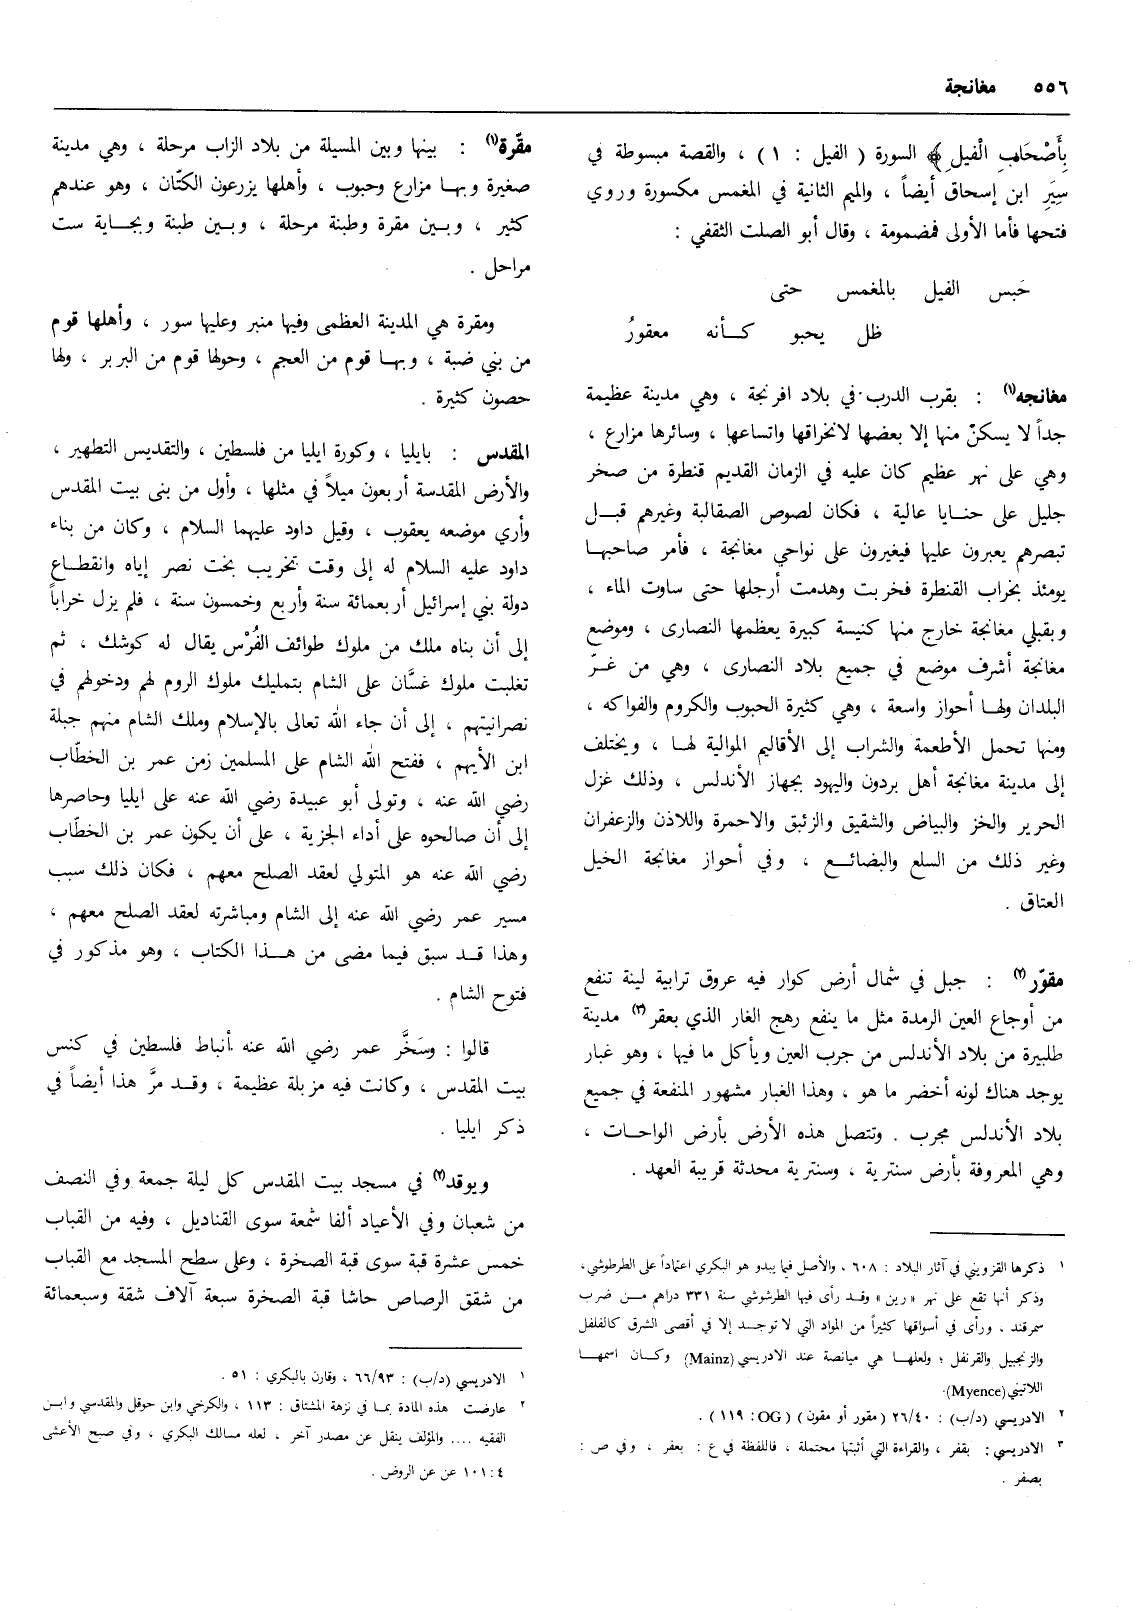 ٥٥٦ مغانجة
بِأَصْحَابِ الْفيلِ ﴾ السورة ( الفيل : ١ ) ، والقصة مبسوطة في
سِيَرِ ابن إسحاق أيضاً ، والميم الثانية في المغمس مكسورة وروي
فتحها فأما الأولى فمضمومة ، وقال أبو الصلت الثقفي :
حَبس الفيل بالمغمس حتى
ظل يحبو كـأنه معقورُ
مغانجه(١) : بقرب الدرب في بلاد افرنجة ، وهي مدينة عظيمة
جداً لا يسكنّ منها إلا بعضها لانخراقها واتساعها ، وسائرها مزارع ،
وهي على نهر عظيم كان عليه في الزمان القديم قنطرة من صخر
جليل على حنايا عالية ، فكان لصوص الصقالبة وغيرهم قبل
تبصرهم يعبرون عليها فيغيرون على نواحي مغانجة ، فأمر صاحبها
يومئذ بخراب القنطرة فخربت وهدمت أرجلها حتى ساوت الماء ،
وبقبلي مغانجة خارج منها كنيسة كبيرة يعظمها النصارى ، وموضع
مغانجة أشرف موضع في جميع بلاد النصارى ، وهي من غرّ
البلدان ولها أحواز واسعة ، وهي كثيرة الحبوب والكروم والفواكه ،
ومنها تحمل الأطعمة والشراب إلى الأقاليم الموالية لها ، ويختلف
إلى مدينة مغانجة أهل بردون واليهود بجهاز الأندلس ، وذلك غزل
الحرير والخز والبياض والشقيق والزئبق والاحمرة واللاذن والزعفران
وغير ذلك من السلع والبضائع ، وفي أحواز مغانجة الخيل
العتاق .
مقوّر(٢) : جبل في شمال أرض كوار فيه عروق ترابية لينة تنفع
من أوجاع العين الرمدة مثل ما ينفع رهج الغار الذي بعقر(٣) مدينة
طلبيرة من بلاد الأندلس من جرب العين ويأكل ما فيها ، وهو غبار
يوجد هناك لونه أخضر ما هو ، وهذا الغبار مشهور المنفعة في جميع
بلاد الأندلس مجرب . وتتصل هذه الأرض بأرض الواحات ،
وهي المعروفة بأرض سنترية ، وسنترية محدثة قريبة العهد .
١ ذكرها القزويني في آثار البلاد : ٦٠٨ ، والأصل فيما يبدو هو البكري اعتماداً على الطرطوشي ،
وذكر أنها تقع على نهر « رين » وقد رأى فيها الطرشوشي سنة ٣٣١ دراهم من ضرب
سمرقند ، ورأى في أسواقها كثيراً من المواد التي لا توجد إلا في أقصى الشرق كالفلفل
والزنجبيل والقرنفل ؛ ولعلها هي ميانصة عند الادريسي (Mainz) وكان اسمها
اللاتيني (Myence).
٢ الادريسي (د/ب) : ٢٦/٤٠ (مقور أو مقون) (OG : ١١٩) .
٣ الادريسي : بقفر ، والقراءة التي أثبتها محتملة ، فاللفظة في ع : بعفر ، وفي ص :
بصفر .
مقّرة(١) : بينها وبين المسيلة من بلاد الزاب مرحلة ، وهي مدينة
صغيرة وبها مزارع وحبوب ، وأهلها يزرعون الكتّان ، وهو عندهم
كثير ، وبين مقرة وطبنة مرحلة ، وبين طبنة وبجاية ست
مراحل .
ومقرة هي المدينة العظمى وفيها منبر وعليها سور ، وأهلها قوم
من بني ضبة ، وبها قوم من العجم ، وحولها قوم من البربر ، ولها
حصون كثيرة .
المقدس : بايليا ، وكورة ايليا من فلسطين ، والتقديس التطهير ،
والأرض المقدسة أربعون ميلاً في مثلها ، وأول من بنى بيت المقدس
وأري موضعه يعقوب ، وقيل داود عليهما السلام ، وكان من بناء
داود عليه السلام له إلى وقت تخريب بخت نصر إياه وانقطاع
دولة بني إسرائيل أربعمائة سنة وأربع وخمسون سنة ، فلم يزل خراباً
إلى أن بناه ملك من ملوك طوائف الفُرْس يقال له كوشك ، ثم
تغلبت ملوك غسَّان على الشام بتمليك ملوك الروم لهم ودخولهم في
نصرانيتهم ، إلى أن جاء الله تعالى بالإسلام وملك الشام منهم جبلة
ابن الأيهم ، ففتح الله الشام على المسلمين زمن عمر بن الخطّاب
رضي الله عنه ، وتولى أبو عبيدة رضي الله عنه على ايليا وحاصرها
إلى أن صالحوه على أداء الجزية ، على أن يكون عمر بن الخطّاب
رضي الله عنه هو المتولي لعقد الصلح معهم ، فكان ذلك سبب
مسير عمر رضي الله عنه إلى الشام ومباشرته لعقد الصلح معهم ،
وهذا قد سبق فيما مضى من هذا الكتاب ، وهو مذكور في
فتوح الشام .
قالوا : وسَخَّر عمر رضي الله عنه أنباط فلسطين في كنس
بيت المقدس ، وكانت فيه مزبلة عظيمة ، وقد مرَّ هذا أيضاً في
ذكر ايليا .
ويوقد(٢) في مسجد بيت المقدس كل ليلة جمعة وفي النصف
من شعبان وفي الأعياد ألفا شمعة سوى القناديل ، وفيه من القباب
خمس عشرة قبة سوى قبة الصخرة ، وعلى سطح المسجد مع القباب
من شقق الرصاص حاشا قبة الصخرة سبعة آلاف شقة وسبعمائة
١ الادريسي (د/ب) : ٦٦/٩٣ ، وقارن بالبكري : ٥١ .
٢ عارضت هذه المادة بما في نزهة المشتاق : ١١٣ ، والكرخي وابن حوقل والمقدسي وابن
الفقيه .... والمؤلف ينقل عن مصدر آخر ، لعله مسالك البكري ، وفي صبح الأعشى
٤ : ١٠١ عن عن الروض .